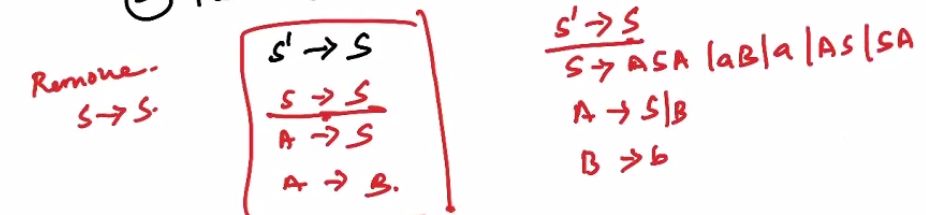 Remove.
S → S.
S' → S
S → S
A → S
A → B.
S' → S
S → ASA | aB | a | AS | SA
A → S | B
B → b